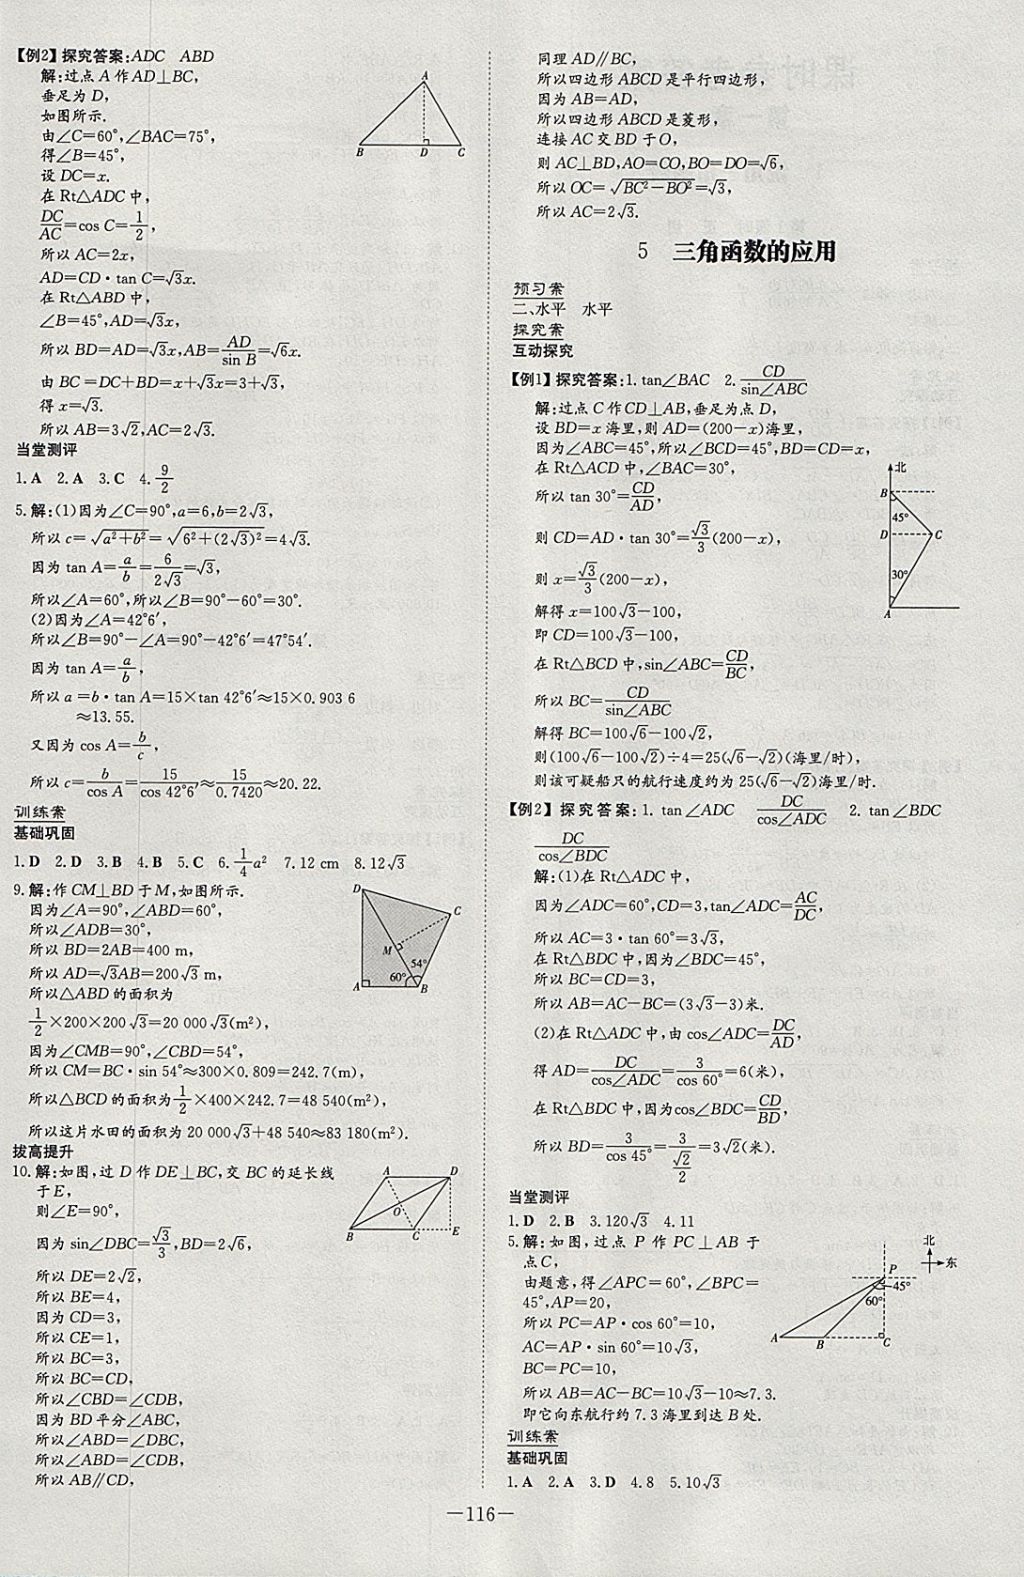 【例2】探究答案:ADC ABD
解:过点A作AD⊥BC,
垂足为D,
如图所示.
由∠C=60°,∠BAC=75°,
得∠B=45°,
设DC=x.
在Rt△ADC中,
DC/AC=cos C=1/2,
所以AC=2x,
AD=CD·tan C=√3x.
在Rt△ABD中,
∠B=45°,AD=√3x,
所以BD=AD=√3x,AB=AD/sin B=√6x.
由BC=DC+BD=x+√3x=3+√3,
得x=√3.
所以AB=3√2,AC=2√3.
A
B D C
当堂测评
1.A 2.A 3.C 4.9/2
5.解:(1)因为∠C=90°,a=6,b=2√3,
所以c=√(a²+b²)=√(6²+(2√3)²)=4√3.
因为tan A=a/b=6/2√3=√3,
所以∠A=60°,所以∠B=90°-60°=30°.
(2)因为∠A=42°6′,
所以∠B=90°-∠A=90°-42°6′=47°54′.
因为tan A=a/b,
所以a=b·tan A=15×tan 42°6′≈15×0.903 6
≈13.55.
又因为cos A=b/c,
所以c=b/cos A=15/cos 42°6′≈15/0.7420≈20.22.
训练案
基础巩固
1.D 2.D 3.B 4.B 5.C 6.1/4a² 7.12 cm 8.12√3
9.解:作CM⊥BD于M,如图所示.
因为∠A=90°,∠ABD=60°,
所以∠ADB=30°,
所以BD=2AB=400 m,
所以AD=√3AB=200√3 m,
所以△ABD的面积为
1/2×200×200√3=20 000√3(m²),
因为∠CMB=90°,∠CBD=54°,
所以CM=BC·sin 54°≈300×0.809=242.7(m),
所以△BCD的面积为1/2×400×242.7=48 540(m²),
所以这片水田的面积为20 000√3+48 540≈83 180(m²).
D
C
M
54°
60°
A B
拔高提升
10.解:如图,过D作DE⊥BC,交BC的延长线
于E,
则∠E=90°,
因为sin∠DBC=√3/3,BD=2√6,
所以DE=2√2,
所以BE=4,
因为CD=3,
所以CE=1,
所以BC=3,
所以BC=CD,
所以∠CBD=∠CDB,
因为BD平分∠ABC,
所以∠ABD=∠DBC,
所以∠ABD=∠CDB,
所以AB∥CD,
A D
O
B C E
同理AD∥BC,
所以四边形ABCD是平行四边形,
因为AB=AD,
所以四边形ABCD是菱形,
连接AC交BD于O,
则AC⊥BD,AO=CO,BO=DO=√6,
所以OC=√(BC²-BO²)=√3,
所以AC=2√3.
5 三角函数的应用
预习案
二、水平 水平
探究案
互动探究
【例1】探究答案:1.tan∠BAC 2.CD/sin∠ABC
解:过点C作CD⊥AB,垂足为点D,
设BD=x海里,则AD=(200-x)海里,
因为∠ABC=45°,所以∠BCD=45°,BD=CD=x,
在Rt△ACD中,∠BAC=30°,
所以tan 30°=CD/AD,
则CD=AD·tan 30°=√3/3(200-x),
则x=√3/3(200-x),
解得x=100√3-100,
即CD=100√3-100,
在Rt△BCD中,sin∠ABC=CD/BC,
所以BC=CD/sin∠ABC
解得BC=100√6-100√2,
则(100√6-100√2)÷4=25(√6-√2)(海里/时),
则该可疑船只的航行速度约为25(√6-√2)海里/时.
北
B
45°
D C
30°
A
【例2】探究答案:1.tan∠ADC DC/cos∠ADC 2.tan∠BDC
DC/cos∠BDC
解:(1)在Rt△ADC中,
因为∠ADC=60°,CD=3,tan∠ADC=AC/DC,
所以AC=3·tan 60°=3√3,
在Rt△BDC中,因为∠BDC=45°,
所以BC=CD=3,
所以AB=AC-BC=(3√3-3)米.
(2)在Rt△ADC中,由cos∠ADC=DC/AD,
得AD=DC/cos∠ADC=3/cos 60°=6(米),
在Rt△BDC中,因为cos∠BDC=CD/BD,
所以BD=3/cos 45°=3/(√2/2)=3√2(米).
当堂测评
1.D 2.B 3.120√3 4.11
5.解:如图,过点P作PC⊥AB于
点C,
由题意,得∠APC=60°,∠BPC=
45°,AP=20,
所以PC=AP·cos 60°=10,
AC=AP·sin 60°=10√3,
BC=PC=10,
所以AB=AC-BC=10√3-10≈7.3.
即它向东航行约7.3海里到达B处.
北
东
P
45°
60°
A B C
训练案
基础巩固
1.A 2.A 3.D 4.8 5.10√3
—116—